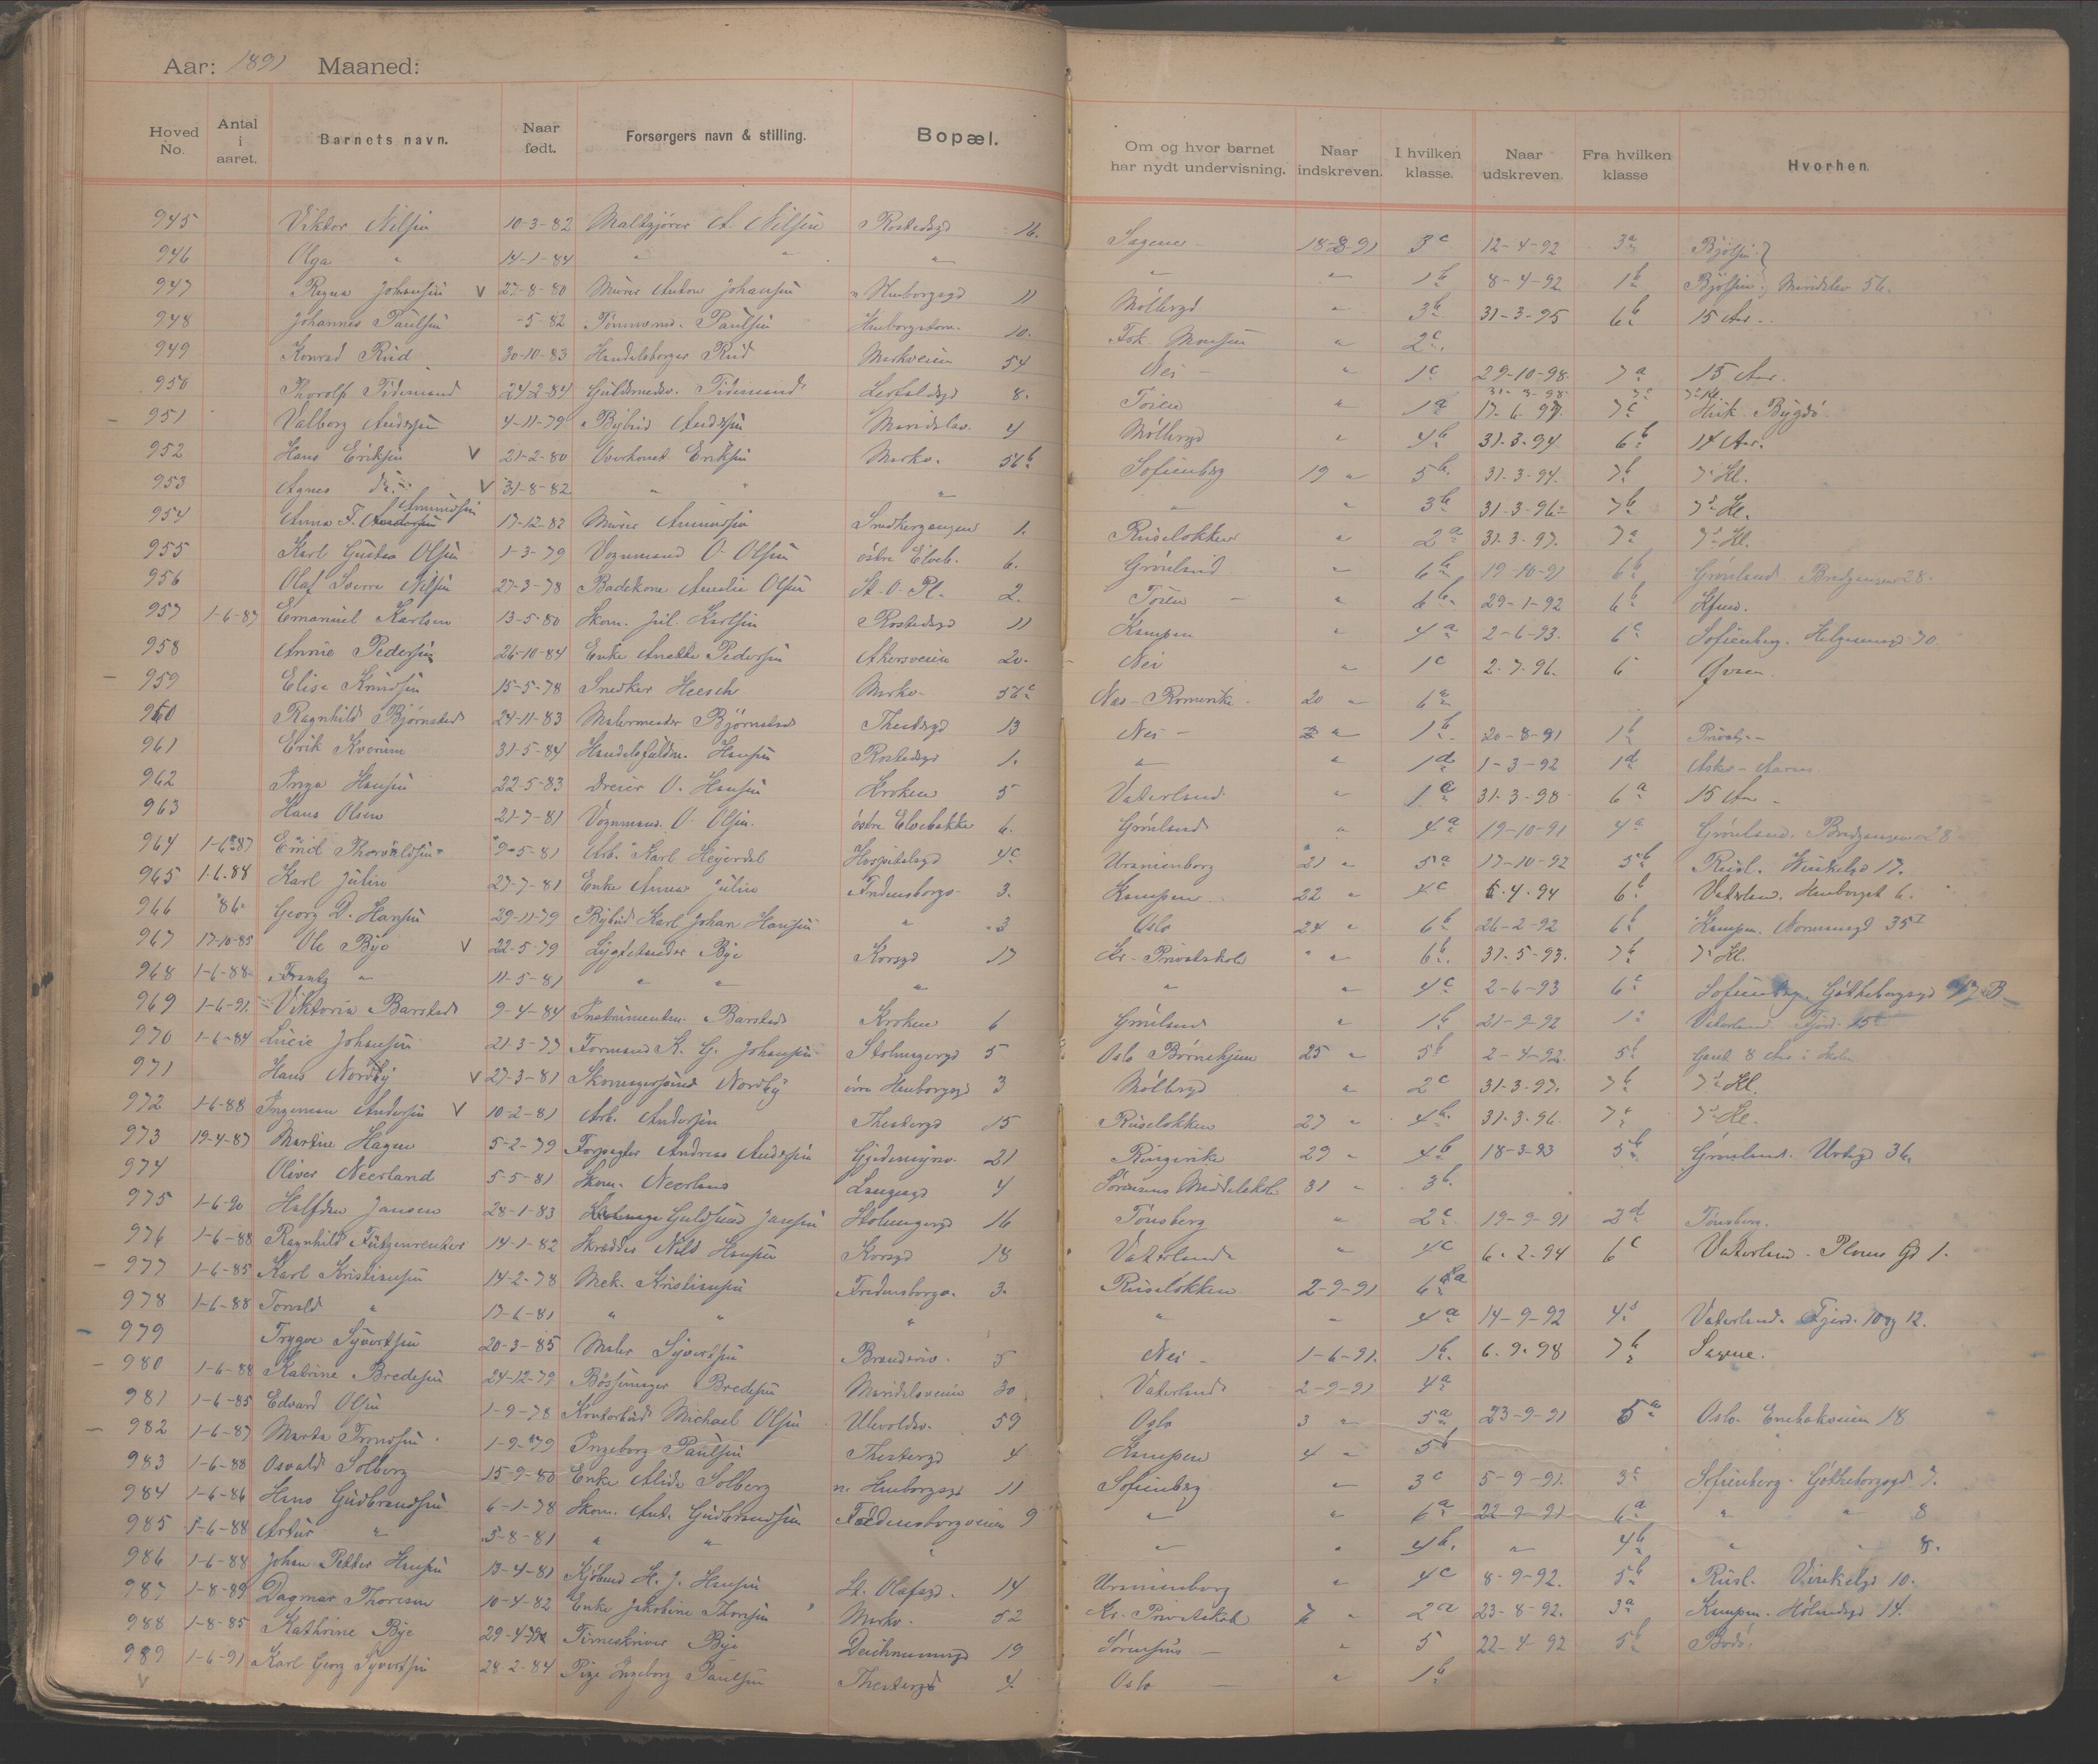 Aar: 1891 Maaned:
Hoved No. Antal i aaret. Barnets navn. Naar født. Forsørgers navn & stilling. Bopæl. Om og hvor barnet har nydt undervisning. Naar indskreven. I hvilken klasse. Naar udskreven. Fra hvilken klasse Hvorhen.
945 Viktor Nilsen 10-3-82 A. Nilsen Rostedsgd 16. Sagene 18-8-91 3c 12-4-92 3a Bjølsen
946 Olga " 14-1-84 " " " " " 1b 8-4-92 1b Bjølsen Maridalsv 56.
947 Ragna Johansen V 27-8-80 Murer Anton Johansen n Humborgsgd 11 Møllergd " 3b 31-3-95 6b 15 Aar
948 Johannes Paulsen -5-82 Tømmermd. Paulsen 10. " 2c.
949 Konrad Rud 30-10-83 Handelsborger Rud Markveien 54 Nei " 1c 29-10-98 7a 15 Aar.
950 Thorolf Tidemand 24-2-84 Guldsmedsv. Tidemand 8. Tøien " 1a 17-6-97 7c Bygdø
951 Valborg Andersen 4-11-79 Bybud Andersen Maridalsv. 4 Møllergd " 4b 31-3-94 6b 14 Aar.
952 Hans Eriksen V 21-2-80 Overkonst Eriksen Markv. 56b Sofienberg 19 " 5b. 31-3-94. 7b 7' Kl.
953 Agnes do. V 31-8-82 " " " " " 3b 31-3-96 7b 7' Kl.
954 Anna F. Amundsen 17-12-82 Murer Amundsen Snedkergangen 1. Ruseløkken " 2a 31-3-97. 7a 7' Kl.
955 Karl Gustav Olsen 1-3-79 Vognmand O. Olsen østre Elveb. 6. Grønland " 6b 19-10-91 6b Grønland Bredgangen 28.
956 Olaf Sverre Nilsen 27-3-78 Badekone Amalie Olsen St. O. Pl. 2. Tøien " 6b. 29-1-92 6b
957 1-6-87 Emanuel Karlsen 13-5-80 Skom. Jul. Karlsen Rostedsgd 11 Kampen " 4a 2-6-93. 6c Sofienberg. Helgesensgd 70.
958 Annie Pedersen 26-10-84 Enke Anette Pedersen Akersveien 20. Nei " 1c 2-7-96. 6
959 Elise Knudsen 15-5-78 Snedker Heesch Markv. 56c Nes-Romerike 20 " 6a
960 Ragnhild Bjørnstad 24-11-83 Malermester Bjørnstad Thestersgd 13 Nei " 1b. 20-8-91 1b
961 Erik Kverum 31-5-84 Handelsfuldm. Hansen Rostedsgd 1. " " 1d 1-3-92 1d Asker
962 Inga Hansen 22-5-83 Dreier O. Hansen Kroken 5 Vaterland " 1c 31-3-98 6a 15 Aar
963 Hans Olsen 21-7-81 Vognmand O. Olsen. østre Elvebakke 6. Grønland " 4a 19-10-91 4a Grønland. Bredgangen 28
964 1-6-87 Emil Thorvaldsen 9-5-81 Arb. Karl Heyerdal Hospitalsgd 4c Uranienborg 21 " 5a 17-10-92 5b Rusl. Vinkelgd 17.
965 1-6-88 Karl Julin 27-7-81 Enke Anna Julin Fredensborgv. 3. Kampen 22 " 4c 6-4-94 6b Vaterland. Humborget 6.
966 86 Georg D. Hansen 29-11-79 Bybud Karl Johan Hansen " 3 Oslo 24 " 6b 26-2-92 6b Kampen. Normansgd 35
967 17-10-85 Ole Bye V 22-5-79 Lygtetænder Bye Korsgd 17 Kr. Privatskole " " 6b. 31-5-93. 7b 7' Kl.
968 1-6-88 Frantz " 11-5-81 " " " " " 4c 2-6-93 6c Sofienberg. Gøtheborgsgd B
969 1-6-91. Viktoria Barstad 9-4-84 Instrumentm. Barstad Kroken 6 Grønland " 1b 21-9-92 1 Vaterland Fjerd. 15
970 1-6-84 Lucie Johansen 21-3-77 Formand K. G. Johansen Stolmagergd 5 Oslo Børnehjem 25 " 5b 2-4-92. 5b 8 Aar i Skole
971 Hans Nordby V 27-3-81 Skomagersvend Nordby øvre Humborgsgd 3 Møllergd " 2c 31-3-97. 7b 7' Kl.
972 1-6-88 Ingeman Andersen V 10-2-81 Arb. Andersen Thestersgd 15 Ruseløkken 27 " 4b. 31-3-96. 7 7' Kl.
973 19-4-87 Martin Hagen 5-2-79 Forpagter Andreas Andersen 21 Ringerike 29 " 4b 18-3-93 5b Grønland. Urtegd 36.
974 Oliver Neerland 5-5-81 Skom. Neerland Langesgd 4 Sørensens Middelskole 31 " 3b.
975 1-6-90 Halfdan Jansen 28-1-83 Guldsmed Jansen Stolmagergd 16 Tønsberg " 2c 19-9-91 2d Tønsberg.
976 1-6-88 Ragnhild Futzenreuter 14-1-82 Skrædder Nils Hansen Korsgd 18 Vaterland " 4c 6-2-94 6c Vaterland. Gd 1.
977 1-6-85 Karl Kristiansen 14-2-78 Mek. Kristiansen Fredensborgv. 3. Ruseløkken 2-9-91 6a
978 1-6-88 Torvald " 17-6-81 " " " " " 4a 14-9-92 4 Vaterland. Fjerd. 10 og 12.
979 Trygve Syvertsen 20-3-85 Maler Syvertsen 5 Nei 1-6-91. 1b. 6-9-98 7b Sagene.
980 1-6-88 Katrine Bredesen 24-12-79 Bøssemager Bredesen Maridalsveien 30 Vaterland 2-9-91 4a
981 1-6-85 Edvard Olsen 1-9-78 Kontorbud Michael Olsen Ulvoldsv. 59 Oslo 3 " 5a 23-9-91 5a Oslo. Enebakveien 18
982 1-6-87 Marta Trondsen 1-9-79 Ingeborg Paulsen Thestergd 4 Kampen 4 " 5b
983 1-6-88 Osvald Solberg 15-9-80 Enke Alida Solberg n. Humborgsgd 11 Sofienberg " 3c 5-9-91. 3c Sofienberg. Gøtheborgsgd 7.
984 1-6-86 Hans Gudbrandsen 6-1-78 Skom. Ant. Gudbrandsen Fredensborgveien 9 " " 6a 22-9-91 6a " " 8
985 1-6-88 Artur " 5-8-81 " " " " " 4b. " 4b " " 8.
986 1-6-88 Johan Petter Hansen 13-4-81 Kjøbmd H. J. Hansen St. Olafsgd. 14 Uranienborg " 4c 8-9-92. 5b Rusl. Vinkelgd 10.
987 1-8-89 Dagmar Thoresen 10-4-82 Enke Jakobine Thoresen Markv. 52 Kr. Privatskole 7 " 2a 23-8-92. 3a Kampen. Hølandsgd 14.
988 1-8-85 Kathrine Bye 29-4-79 Bye Deichmansgd 19 Sørensens " 5 22-4-92 5b Bodø.
989 1-6-91 Karl Georg Syvertsen 28-2-84 Pige Ingeborg Paulsen Thestergd 4. Oslo " 1b